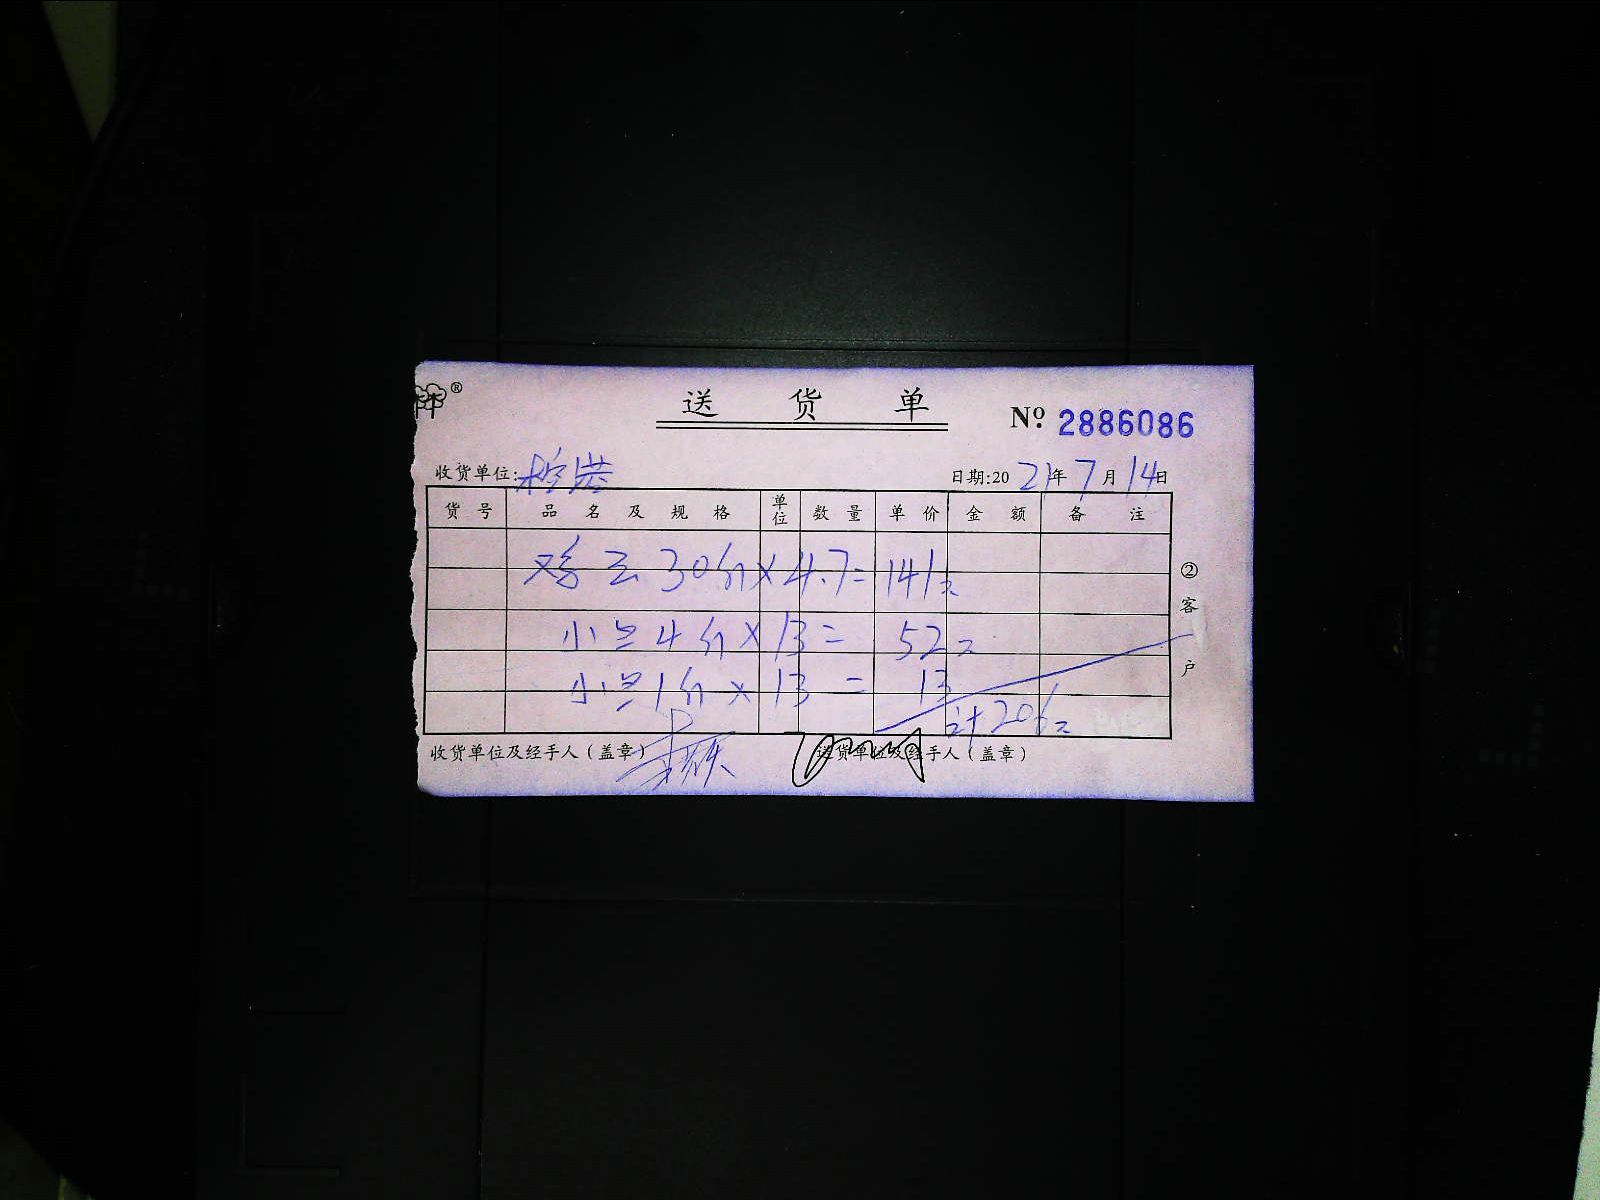 ®
送 货 单
№ 2886086
收货单位:
日期:2021年7月14日
货 号 品 名 及 规 格 单位 数 量 单 价 金 额 备 注
30分×4.7=141元
小兰4分×13= 52元
小兰1分×13= 13
计206元
②客户
收货单位及经手人(盖章) 送货单位及经手人(盖章)